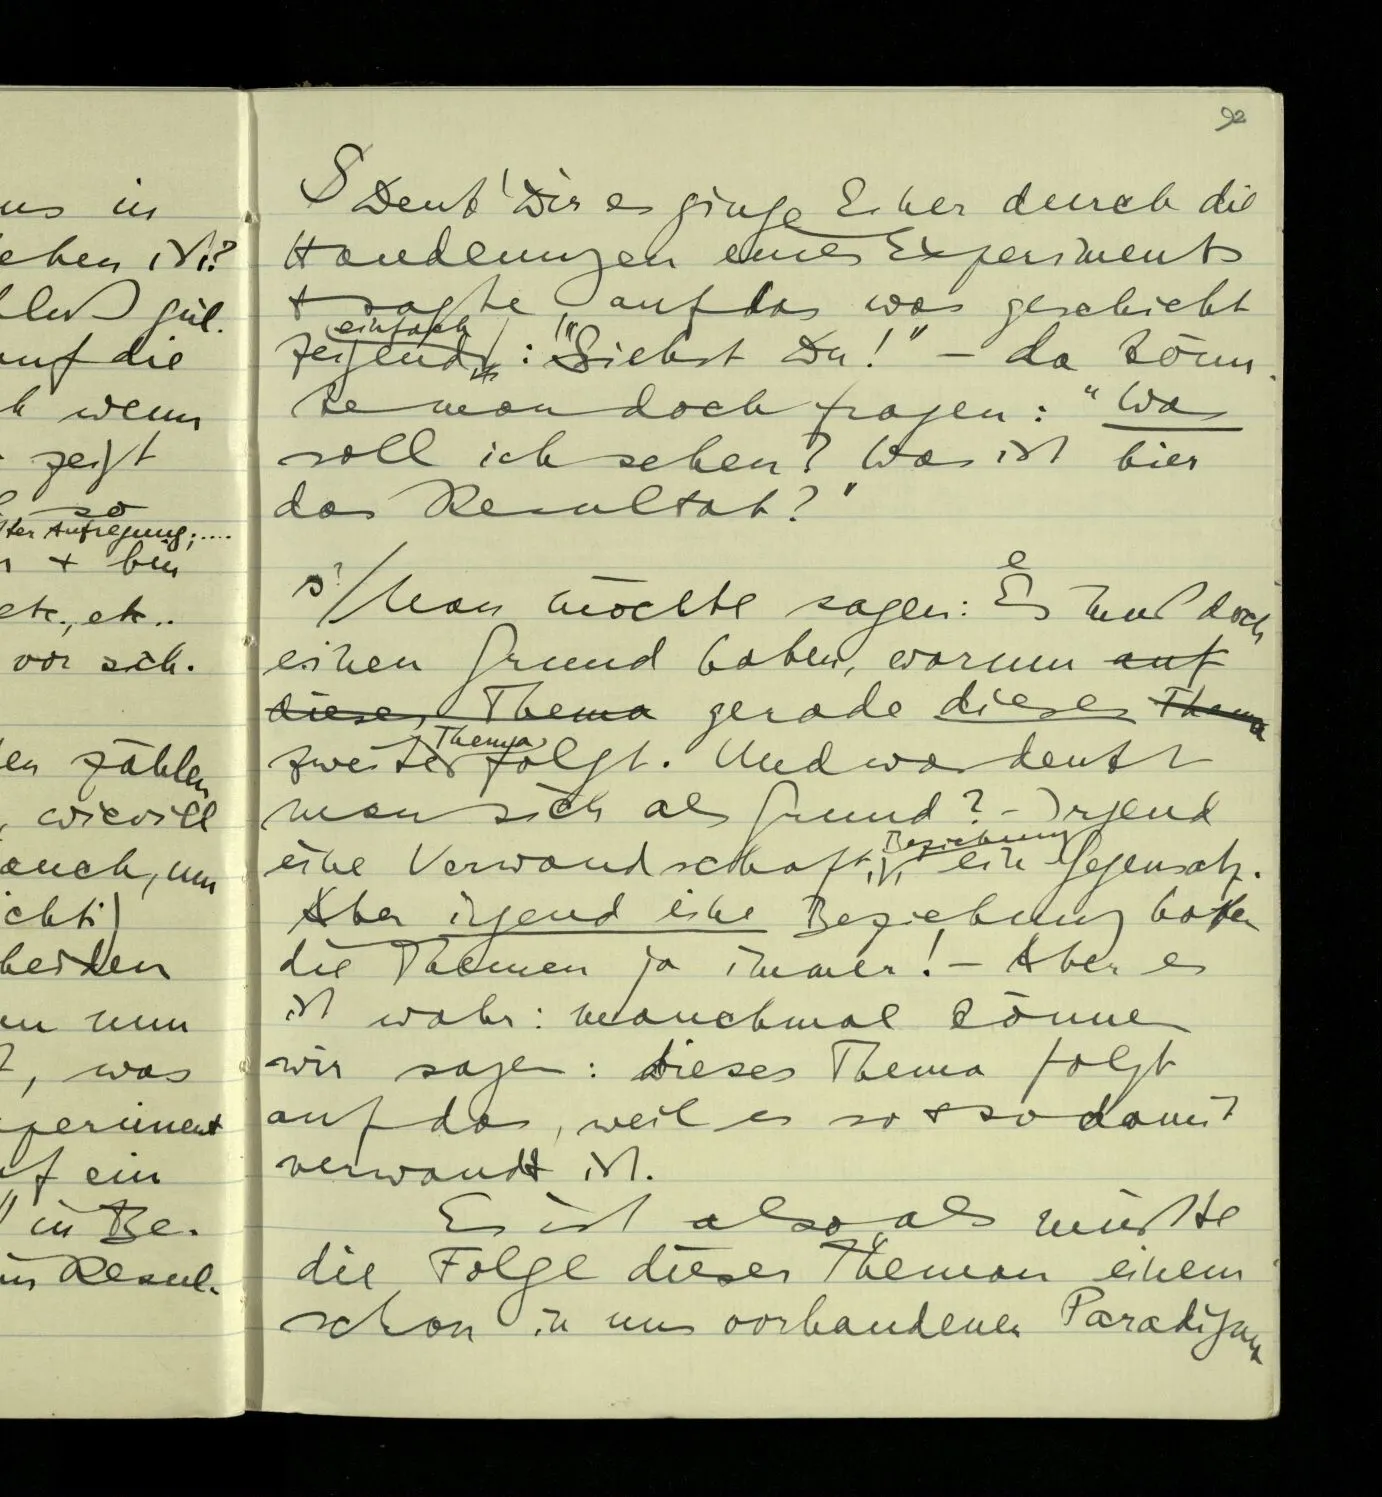 us in
ehen ist?
gül.
auf die
h wenn
zeigt
so
ter Aufregung;....
+ bin
etc., etc..
vor sich.
en zählen
, wieviel
auch, um
icht)
beiden
nun
, was
xperiment
uf ein
" in Be-
Resul-
92
S Denk' Dir es ginge Einer durch die
Handlungen eines Experiments
+ sagte, auf das was geschieht
einfach
zeigend, : "Siehst Du!" – da könn-
te man doch fragen: "Was
soll ich sehen? Was ist hier
das Resultat?"
S? / Man möchte sagen: Es muß doch
einen Grund haben, warum auf
dieses Thema gerade dieses Thema
Thema
zweites folgt. Und was denkt
man sich als Grund? – Irgend
Beziehung
eine Verwandschaft, ein Gegensatz.
Aber irgend eine Beziehung haben
die Themen ja immer! – Aber es
ist wahr: manchmal können
wir sagen: dieses Thema folgt
auf das, weil es so + so damit
verwandt ist.
Es ist also, als müßte
die Folge dieser Themen einem
schon in uns vorhandenen Paradigma